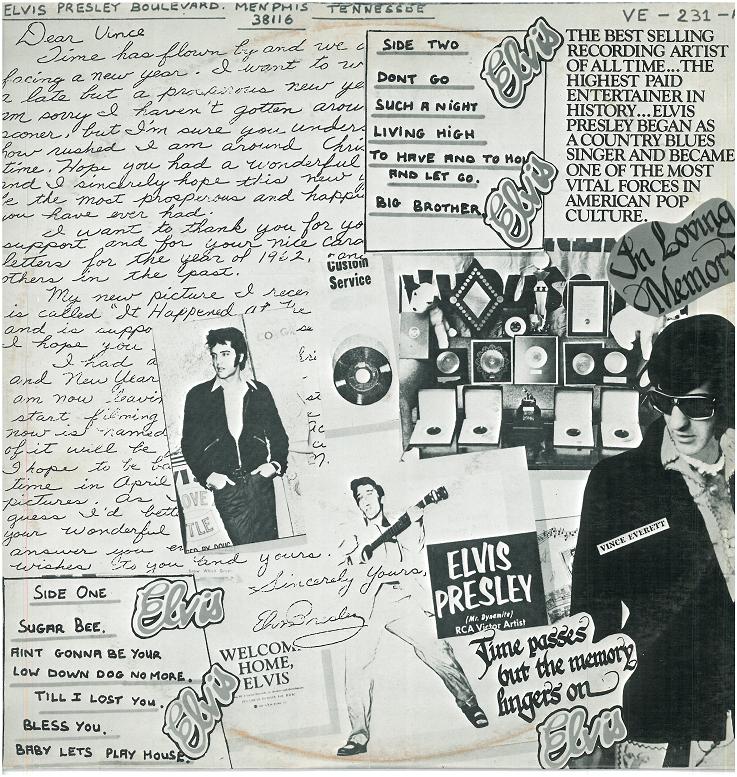 ELVIS PRESLEY BOULEVARD. MEMPHIS TENNESSEE
38116
VE - 231 -
Dear Vince
Time has flown by and we
facing a new year. I want to
a late but a prosperous new
am sorry I haven't gotten
sooner, but I'm sure you
how rushed I am around
time. Hope you had a wonderful
and I sincerely hope this new
the most prosperous and
you have ever had.
I want to thank you for
support and for your nice
letters for the year of 1962, and
others in the past.
My new picture I
is called "It Happened at the
and is
I hope you
I had a
and New Year
am now
start filming
now is named
of it will be
I hope to be
time in April
pictures. As
guess I'd
your wonderful
answer you
wishes to you and yours.
Sincerely Yours,
Elvis Presley
SIDE TWO
DONT GO
SUCH A NIGHT
LIVING HIGH
TO HAVE AND TO HOL
AND LET GO.
BIG BROTHER.
Elvis
Elvis
THE BEST SELLING
RECORDING ARTIST
OF ALL TIME...THE
HIGHEST PAID
ENTERTAINER IN
HISTORY...ELVIS
PRESLEY BEGAN AS
A COUNTRY BLUES
SINGER AND BECAME
ONE OF THE MOST
VITAL FORCES IN
AMERICAN POP
CULTURE.
In Loving
Memory
Custom
Service
VINCE EVERETT
ELVIS
PRESLEY
(Mr. Dynamite)
RCA Victor Artist
Time passes
but the memory
lingers on
Elvis
WELCOME
HOME,
ELVIS
SIDE ONE
SUGAR BEE.
AINT GONNA BE YOUR
LOW DOWN DOG NO MORE.
TILL I LOST YOU.
BLESS YOU.
BABY LETS PLAY HOUSE.
Elvis
Elvis